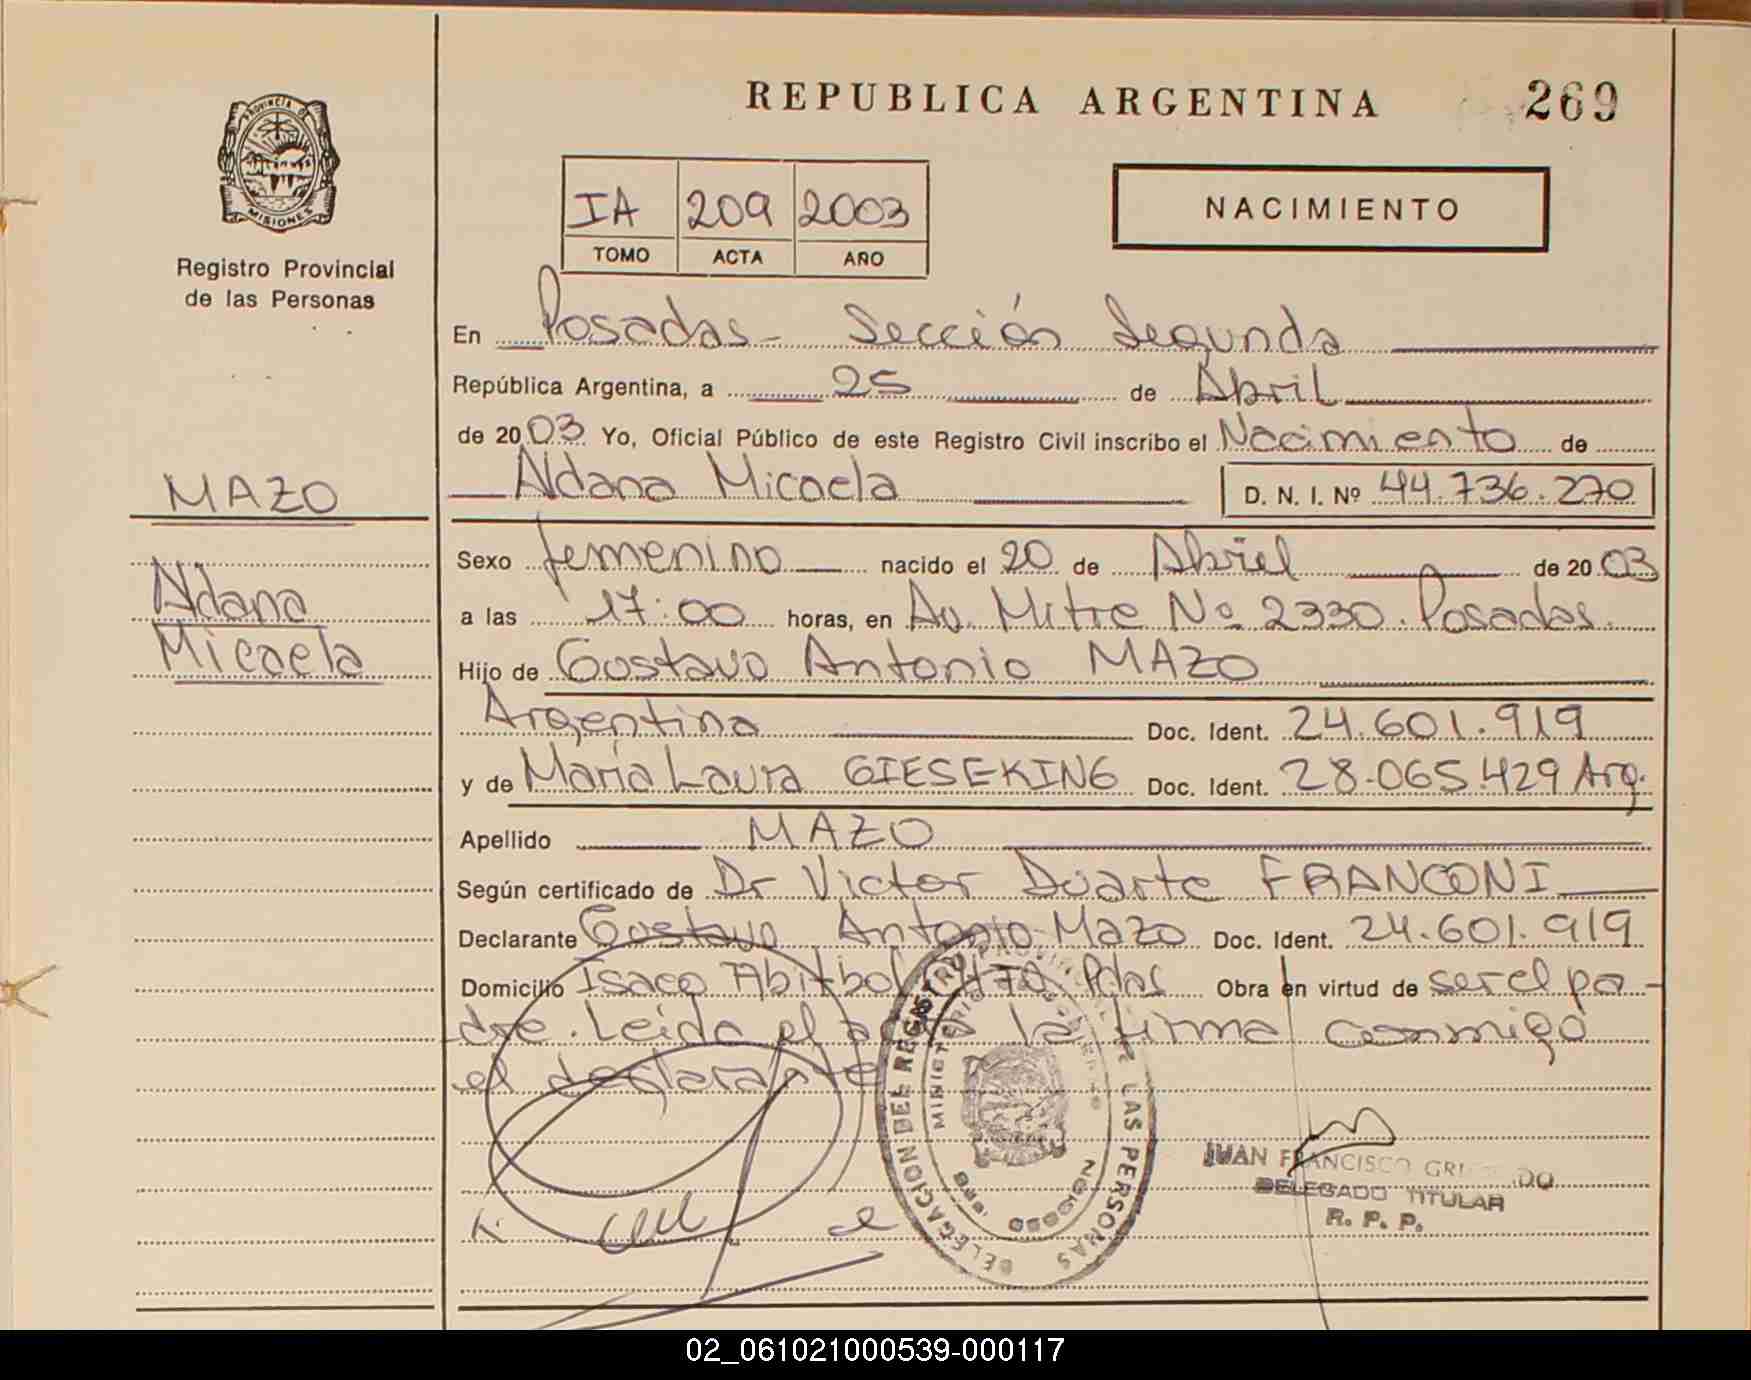 REPUBLICA ARGENTINA
269
PROVINCIA DE
MISIONES
Registro Provincial
de las Personas
IA 209 2003
TOMO ACTA AÑO
NACIMIENTO
En Posadas - Sección Segunda
República Argentina, a 25 de Abril
de 2003 Yo, Oficial Público de este Registro Civil inscribo el Nacimiento de
Aldana Micaela D. N. I. Nº 44.736.270
MAZO
Aldana
Micaela
Sexo femenino nacido el 20 de Abril de 2003
a las 17:00 horas, en Av. Mitre Nº 2330. Posadas.
Hijo de Gustavo Antonio MAZO
Argentina Doc. Ident. 24.601.919
y de María Laura GIESEKING Doc. Ident. 28.065.429 Arg.
Apellido MAZO
Según certificado de Dr Victor Duarte FRANCONI
Declarante Gustavo Antonio Mazo Doc. Ident. 24.601.919
Domicilio Isaco Abitbol Pdas Obra en virtud de ser el pa-
dre. Leída el acta la firma conmigo
el declarante
DELEGACION DEL REGISTRO PROVINCIAL DE LAS PERSONAS
MINISTERIO DE GOBIERNO
MISIONES
JUAN FRANCISCO
DELEGADO TITULAR
R. P. P.
02_061021000539-000117